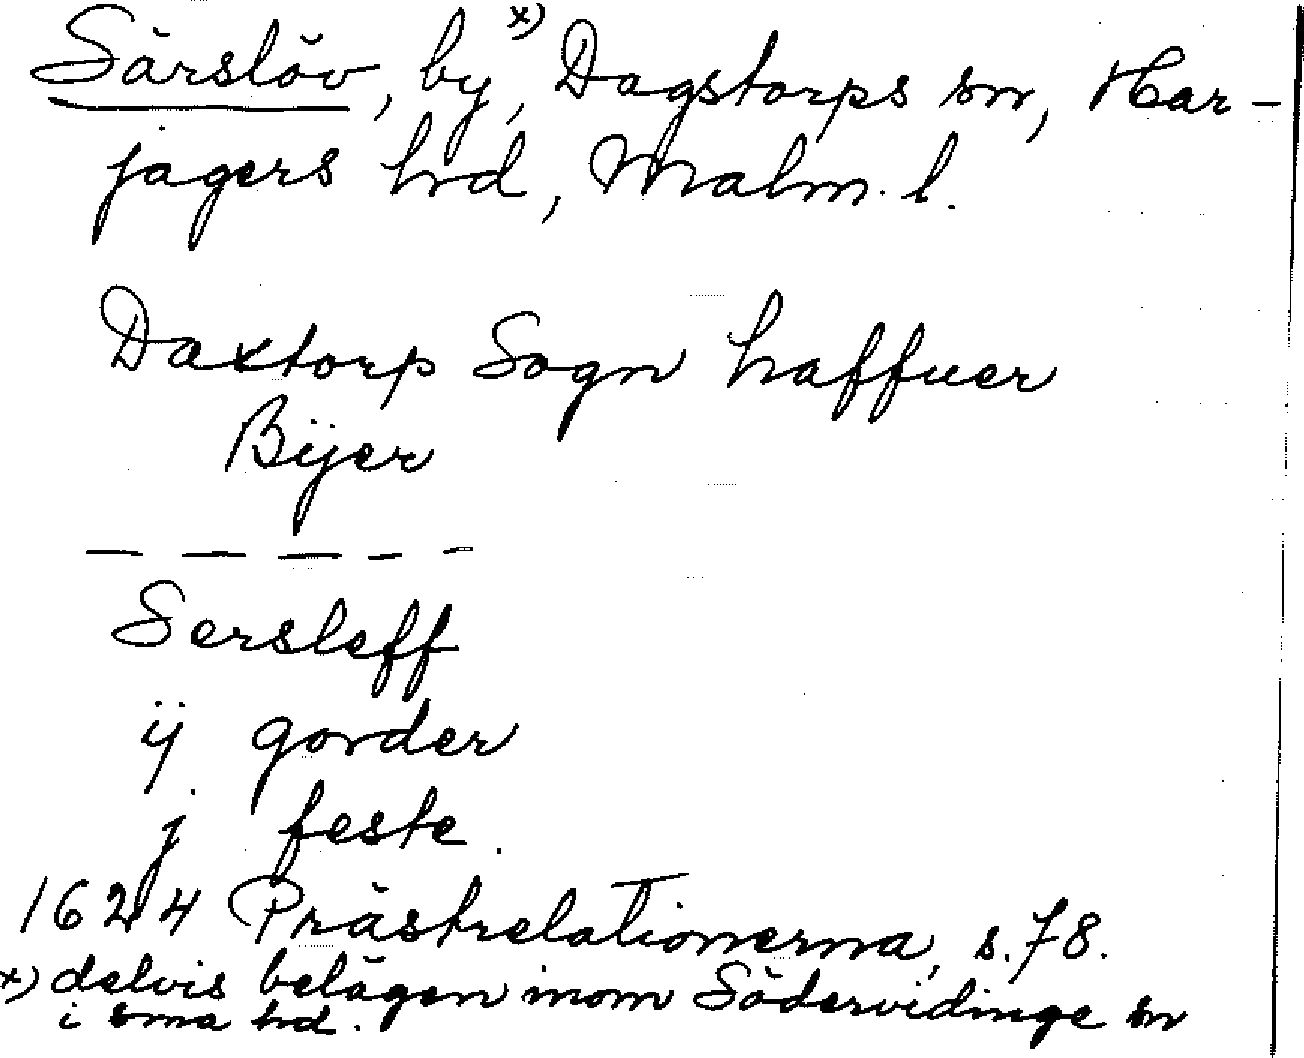 Särslöv, by, x) Dagstorps sn, Har-
jagers hrd, Malm. l.
Daxtorp Sogn haffuer
Bÿer
— — — — —
Sersleff
ij gorder
j feste.
1624 Prästrelationerna, s. 78.
x) delvis belägen inom Södervidinge sn
i sma hd.